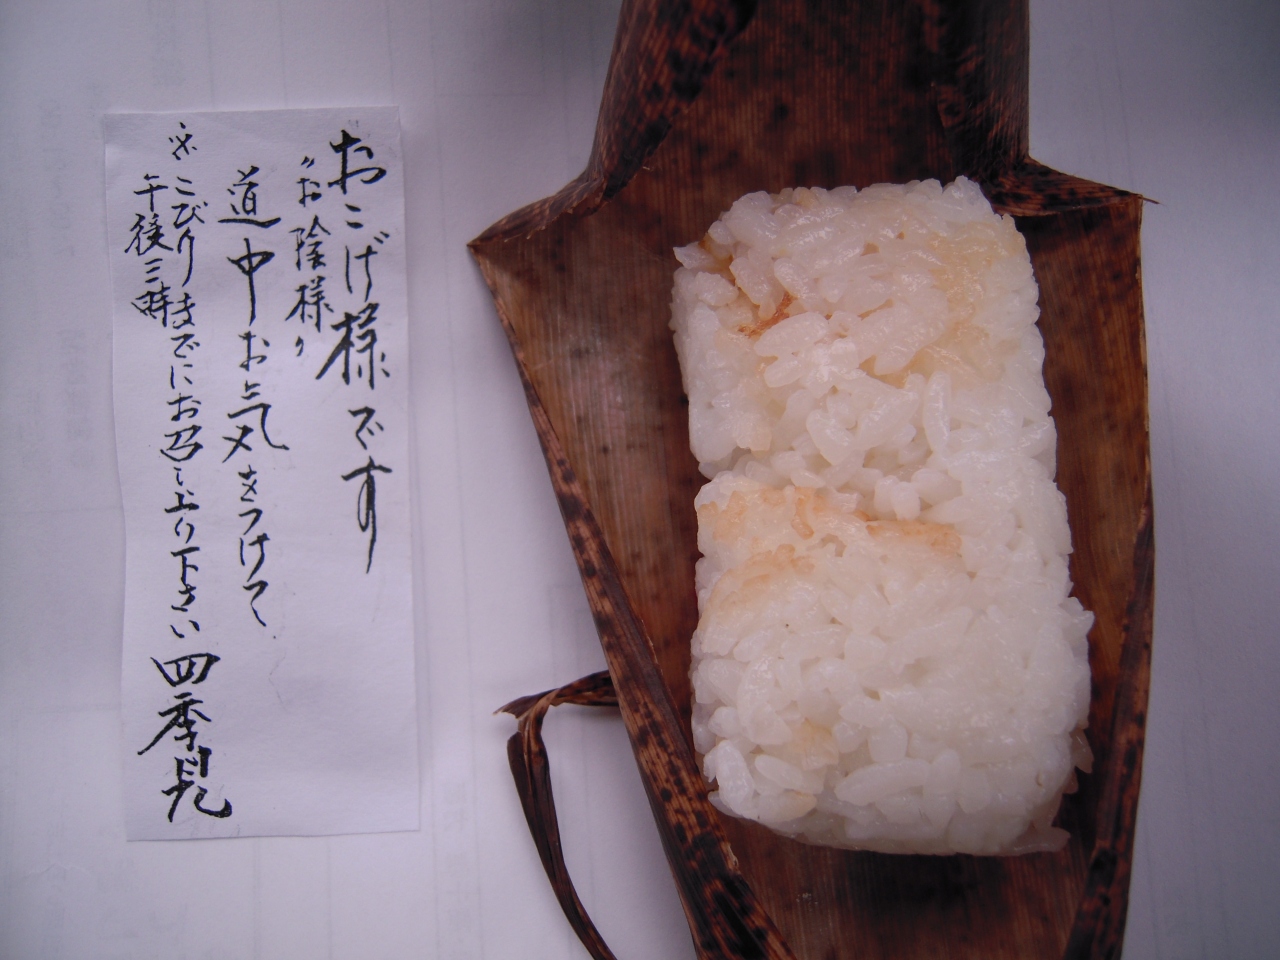 おこげ様です
〝お陰様〟
道中お気をつけて
※こびりまでにお召し上り下さい
午後三時
四季